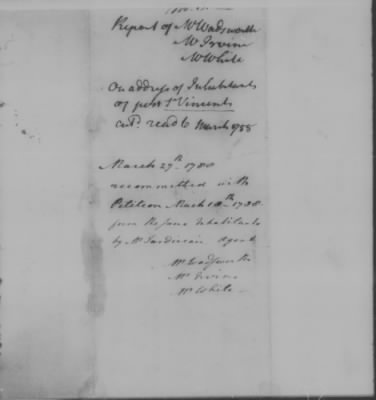 Report of Mr Wadsworth
Mr Irvine
Mr White
On address of Inhabitants
of post St Vincents
read 6 March 1788
March 27th 1788
recommitted with the
Petition March 18th 1788
from the same Inhabitants
by Mr Tardiveau Agent
Mr Wadsworth
Mr Irvine
Mr White